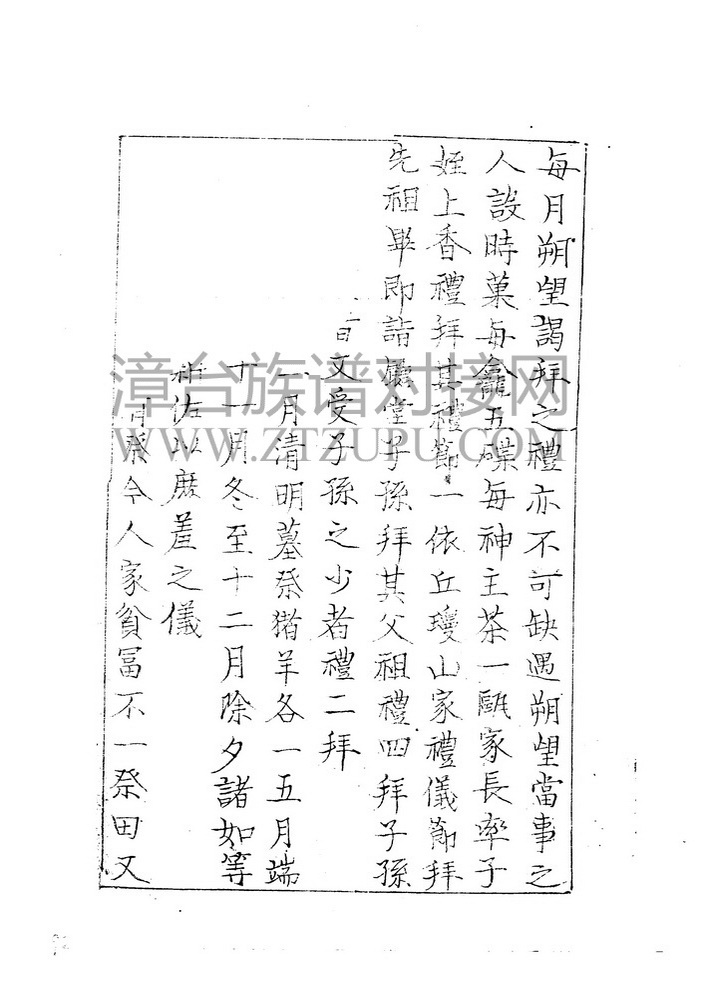 每月朔望謁拜之禮亦不可缺遇朔望當事之
人設時菓每龕五碟每神主茶一甌家長率子
姪上香禮拜其禮節一依丘瓊山家禮儀節拜
先祖畢即詣廳堂子孫拜其父祖禮四拜子孫
文受子孫之少者禮二拜
月清明墓祭猪羊各一五月端
十一月冬至十二月除夕諸如等
佐以庶羞之儀
祭今人家貧冨不一祭田又
漳台族谱对接网
WWW.ZTZUPU.COM